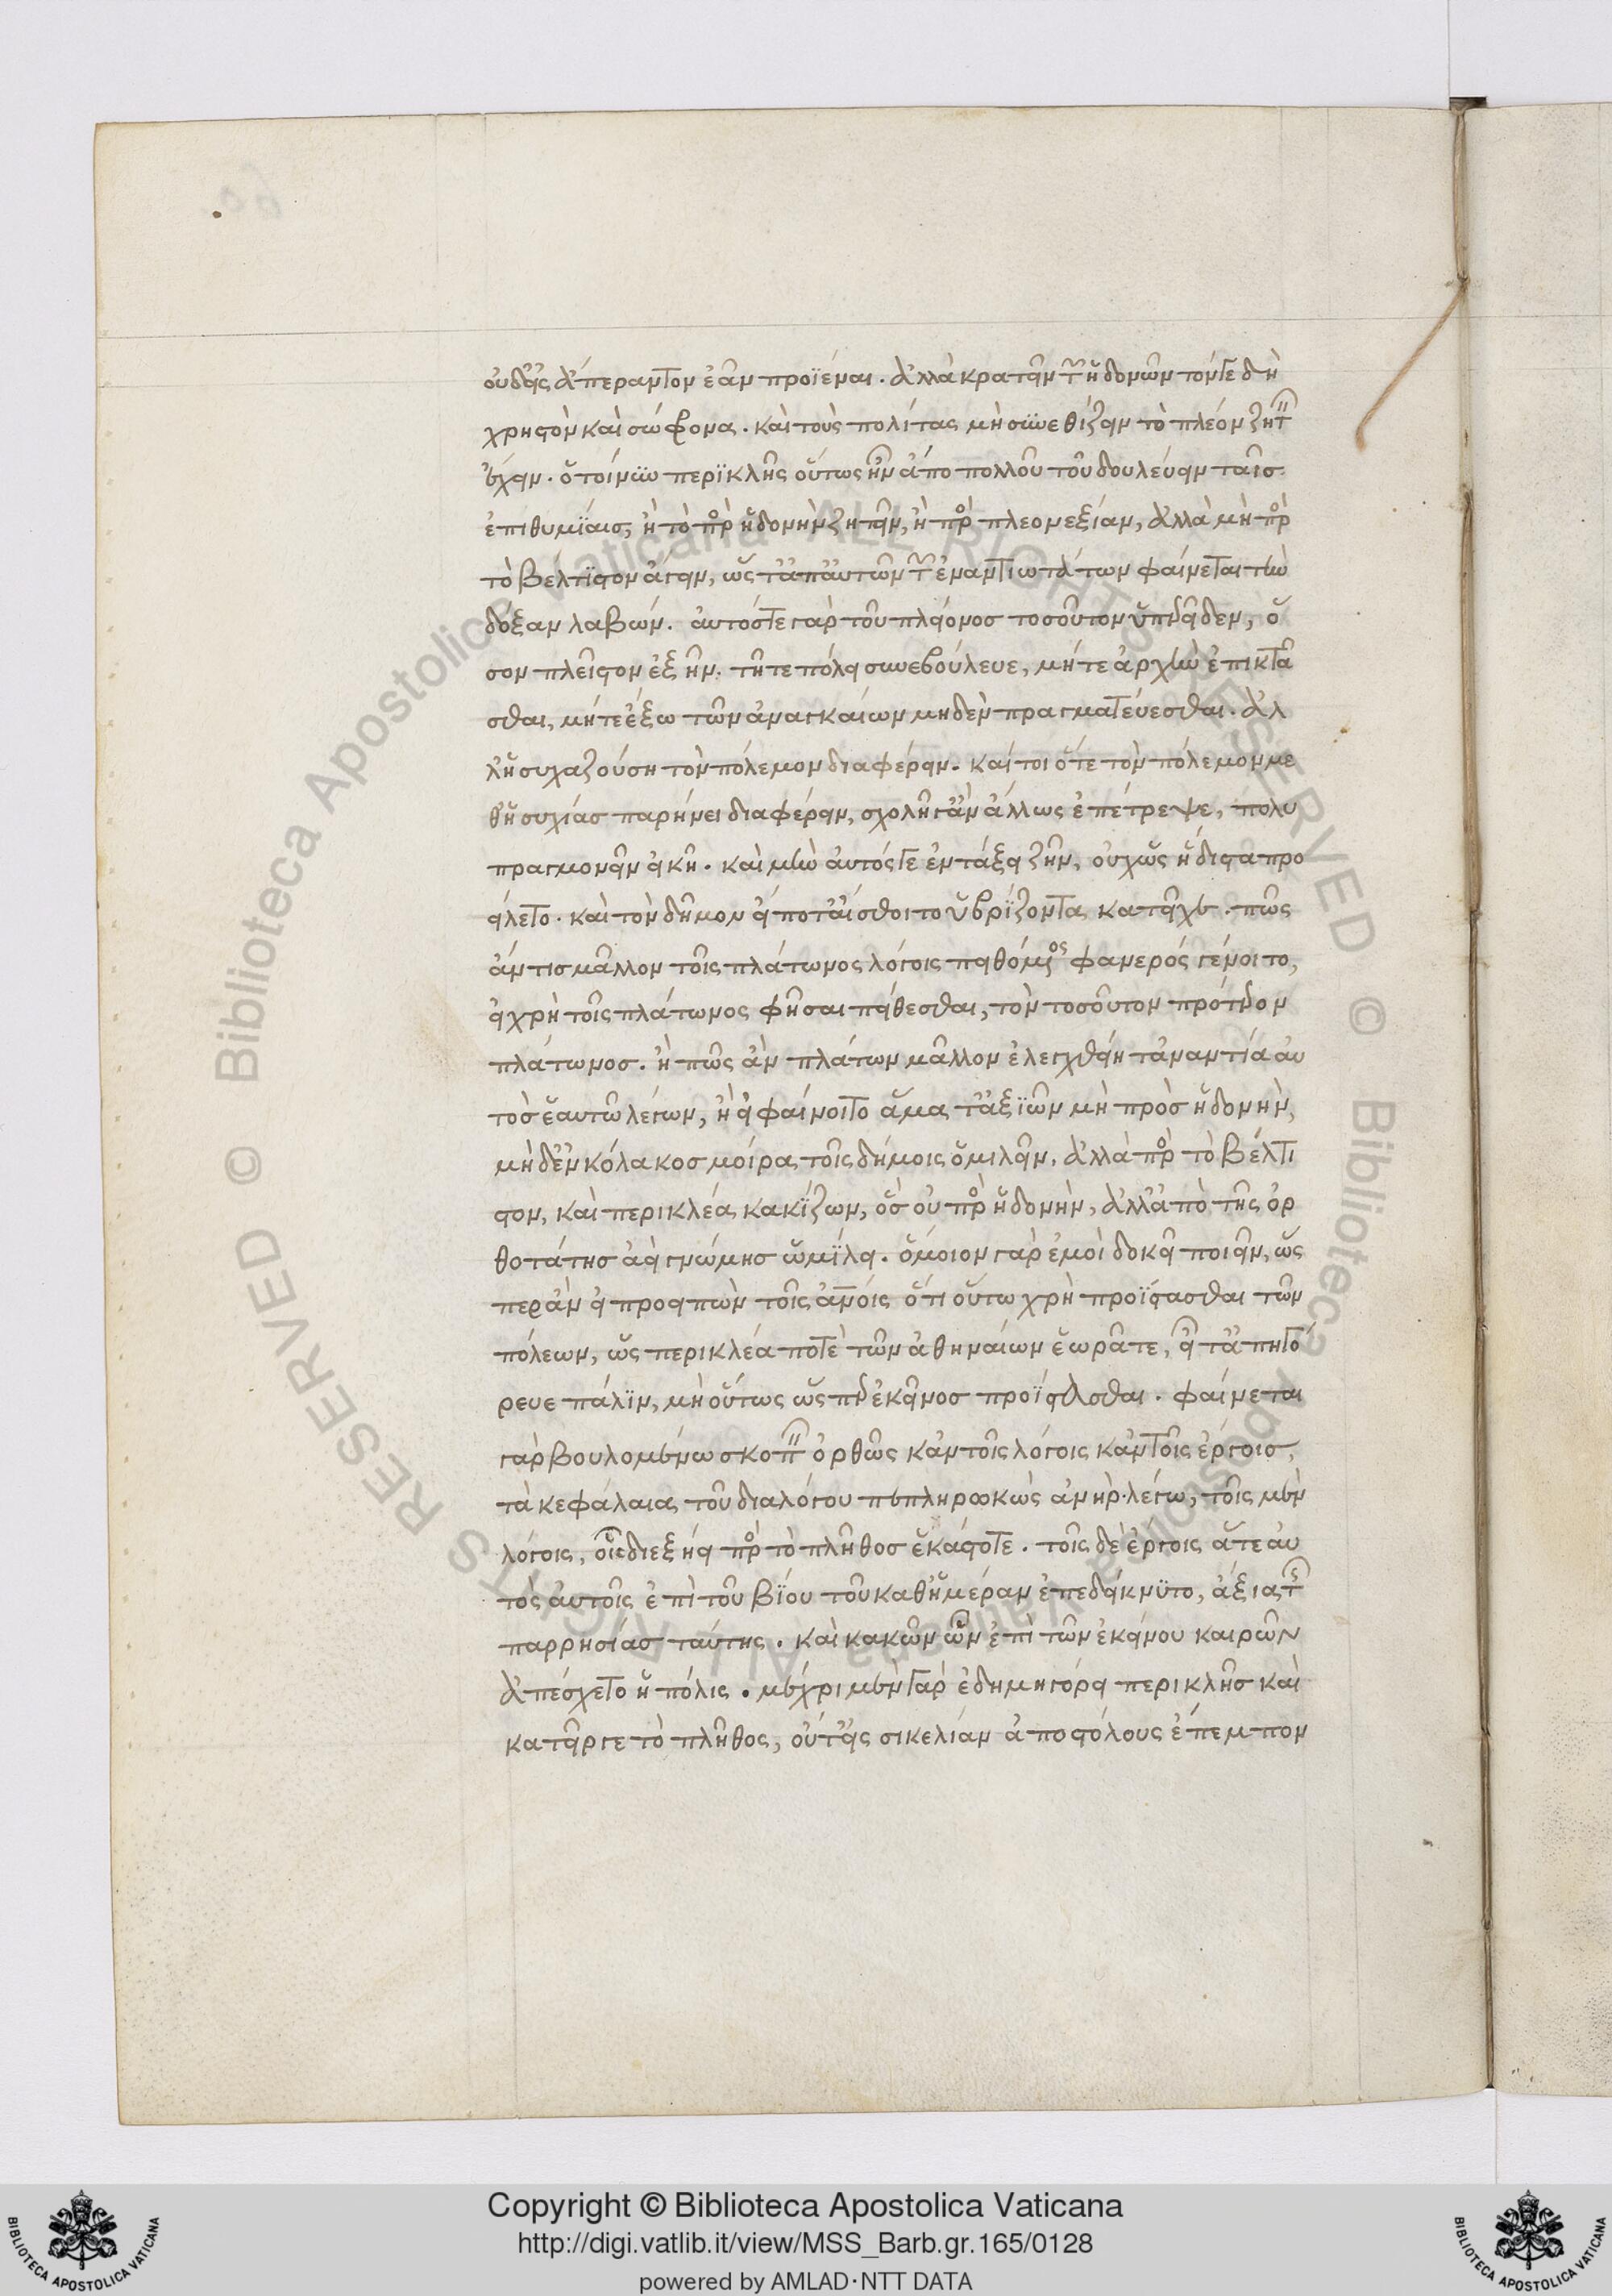 οὐδ' εἰς ἀπέραντον ἐᾶν προϊέναι. ἀλλὰ κρατεῖν τῶν ἡδονῶν τόν γε δὴ
χρηστὸν καὶ σώφρονα. καὶ τοὺς πολίτας μὴ συνεθίζειν τὸ πλέον ζητεῖν
ἔχειν. ὁ τοίνυν περικλῆς οὕτως ἦν ἄπο πολλοῦ τοῦ δουλεύειν ταῖς
ἐπιθυμίαις, ἢ τὸ πρὸς ἡδονὴν ζητεῖν, ἢ πρὸς πλεονεξίαν, ἀλλὰ μὴ πρὸς
τὸ βέλτιστον ἄγειν, ὡς τἀπ' αὐτῶν τῶν ἐναντιωτάτων φαίνεται τὴν
δόξαν λαβών. αὐτός τε γὰρ τοῦ πλείονος τοσοῦτον ὑπερεῖδεν, ὅ
σον πλεῖστον ἐξῆν. τῇ τε πόλει συνεβούλευε, μήτε ἀρχὴν ἐπικτᾶ
σθαι, μήτε ἔξω τῶν ἀναγκαίων μηδὲν πραγματεύεσθαι. ἀλ
λ' ἡσυχαζούσῃ τὸν πόλεμον διαφέρειν. καίτοι ὅτε τὸν πόλεμον με
θ' ἡσυχίας παρῄνει διαφέρειν, σχολῇ γ' ἂν ἄλλως ἐπέτρεψε, πολυ
πραγμονεῖν εἰκῇ. καὶ μὴν αὐτός γε ἐν τάξει ζῆν, οὐχ ὡς ἥδιστα προ
είλετο. καὶ τὸν δῆμον εἴ ποτ' αἴσθοιτο ὑβρίζοντα κατεῖχεν. πῶς
ἄν τις μᾶλλον τοῖς πλάτωνος λόγοις πειθόμενος φανερός γένοιτο,
εἰ χρὴ τοῖς πλάτωνος φῆσαι πείθεσθαι, τὸν τοσοῦτον πρότερον
πλάτωνος. ἢ πῶς ἂν πλάτων μᾶλλον ἐλεγχθείη τἀναντία αὐ
τὸς ἑαυτῷ λέγων, ἢ εἰ φαίνοιτο ἅμα τ' ἀξιῶν μὴ πρὸς ἡδονὴν,
μηδ' ἐν κόλακος μοίρα τοῖς δήμοις ὁμιλεῖν, ἀλλὰ πρὸς τὸ βέλτι
στον, καὶ περικλέα κακίζων, ὃς οὐ πρὸς ἡδονὴν, ἀλλ' ἀπὸ τῆς ὀρ
θοτάτης ἀεὶ γνώμης ὡμίλει. ὅμοιον γὰρ ἐμοὶ δοκεῖ ποιεῖν, ὥς
περ ἂν εἰ προειπὼν τοῖς ἀνθρώποις ὅτι οὕτω χρὴ προΐστασθαι τῶν
πόλεων, ὡς περικλέα ποτὲ τῶν ἀθηναίων ἑωρᾶτε, εἶτ' ἀπηγό
ρευε πάλιν, μὴ οὕτως ὥσπερ ἐκεῖνος προΐστασθαι. φαίνεται
γὰρ βουλομένῳ σκοπεῖν ὀρθῶς κἀν τοῖς λόγοις κἀν τοῖς ἔργοις,
τὰ κεφάλαια τοῦ διαλόγου πεπληρωκὼς ἀνήρ. λέγω, τοῖς μὲν
λόγοις, οἷς διεξῄει πρὸς τὸ πλῆθος ἑκάστοτε. τοῖς δὲ ἔργοις ἅτε αὐ
τὸς αὐτοῖς ἐπὶ τοῦ βίου τοῦ καθ' ἡμέραν ἐπεδείκνυτο, ἄξια τῆς
παρρησίας ταύτης. καὶ κακῶν ὧν ἐπὶ τῶν ἐκείνου καιρῶν
ἀπέσχετο ἡ πόλις. μέχρι μὲν γὰρ ἐδημηγόρει περικλῆς καὶ
κατεῖργε τὸ πλῆθος, οὔτ' εἰς σικελίαν ἀποστόλους ἔπεμπον
Copyright © Biblioteca Apostolica Vaticana
http://digi.vatlib.it/view/MSS_Barb.gr.165/0128
powered by AMLAD·NTT DATA